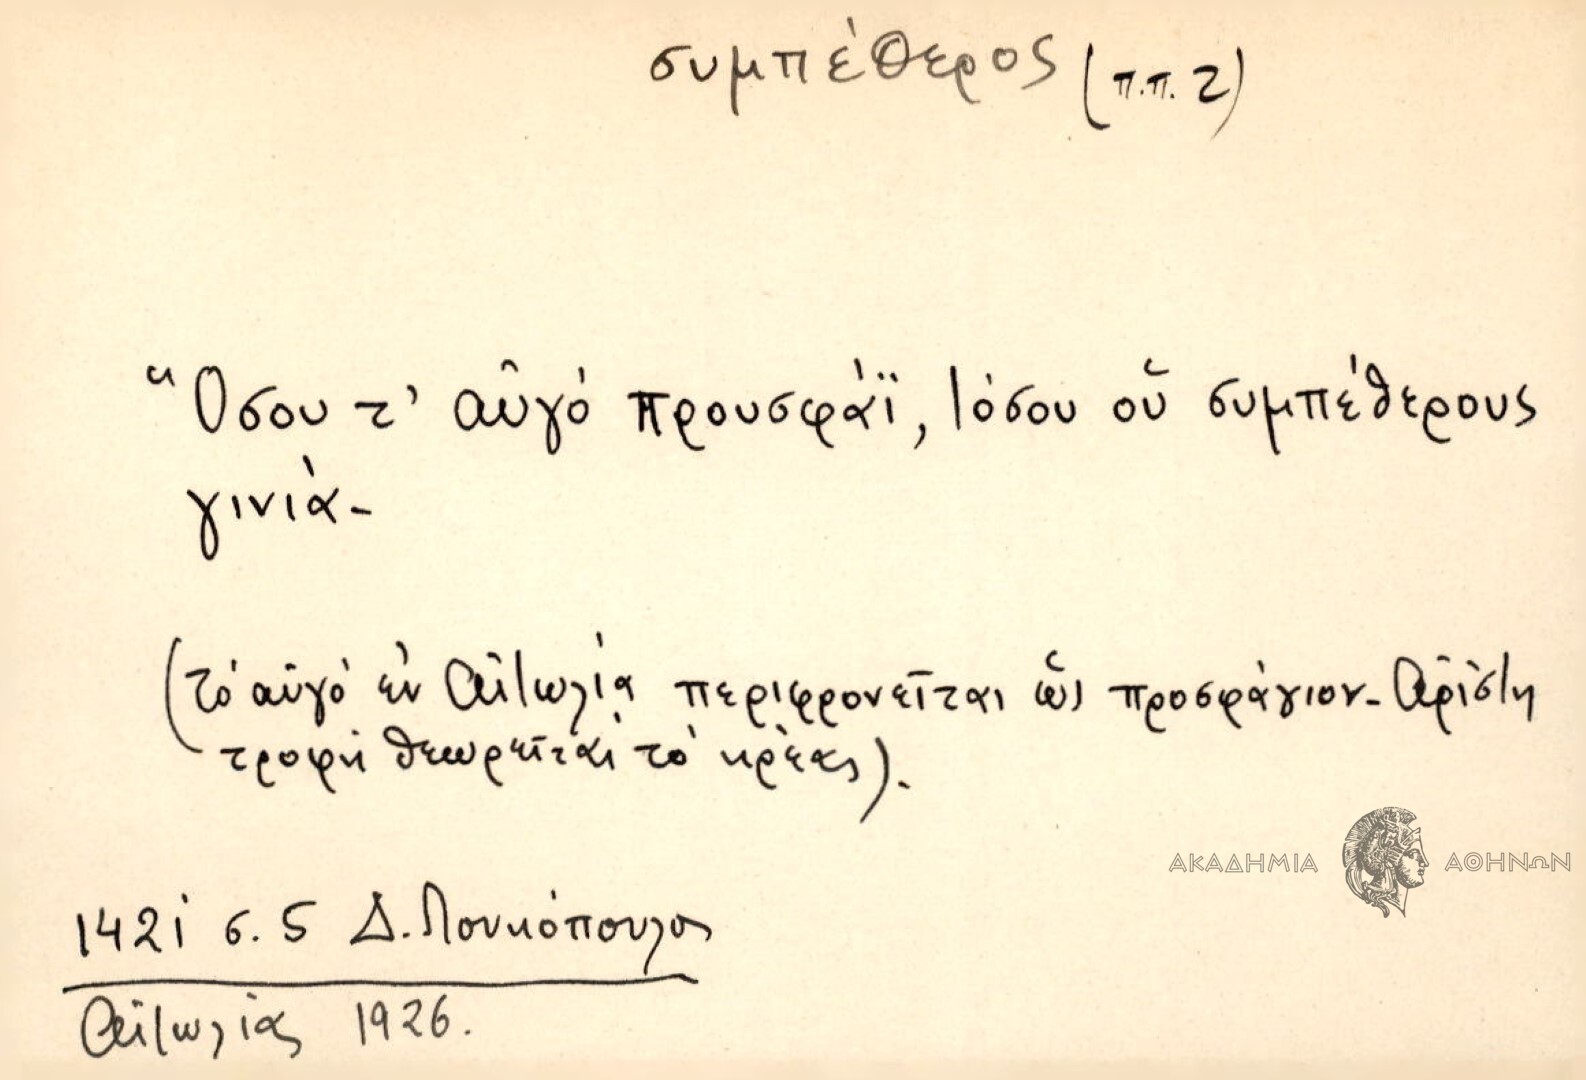 συμπέθερος (π.π. 2)
"Οσου τ' αὐγό προυσφάϊ, τόσου οὑ συμπέθερους
γινιά-
(τό αὐγό ἐν Αἰτωλίᾳ περιφρονεῖται ὡς προσφάγιον- Ἀρίστη
τροφή θεωρεῖται τό κρέας).
ΑΚΑΔΗΜΙΑ ΑΘΗΝΩΝ
1421 σ. 5 Δ. Λουκόπουλος
Αἰτωλίας 1926.